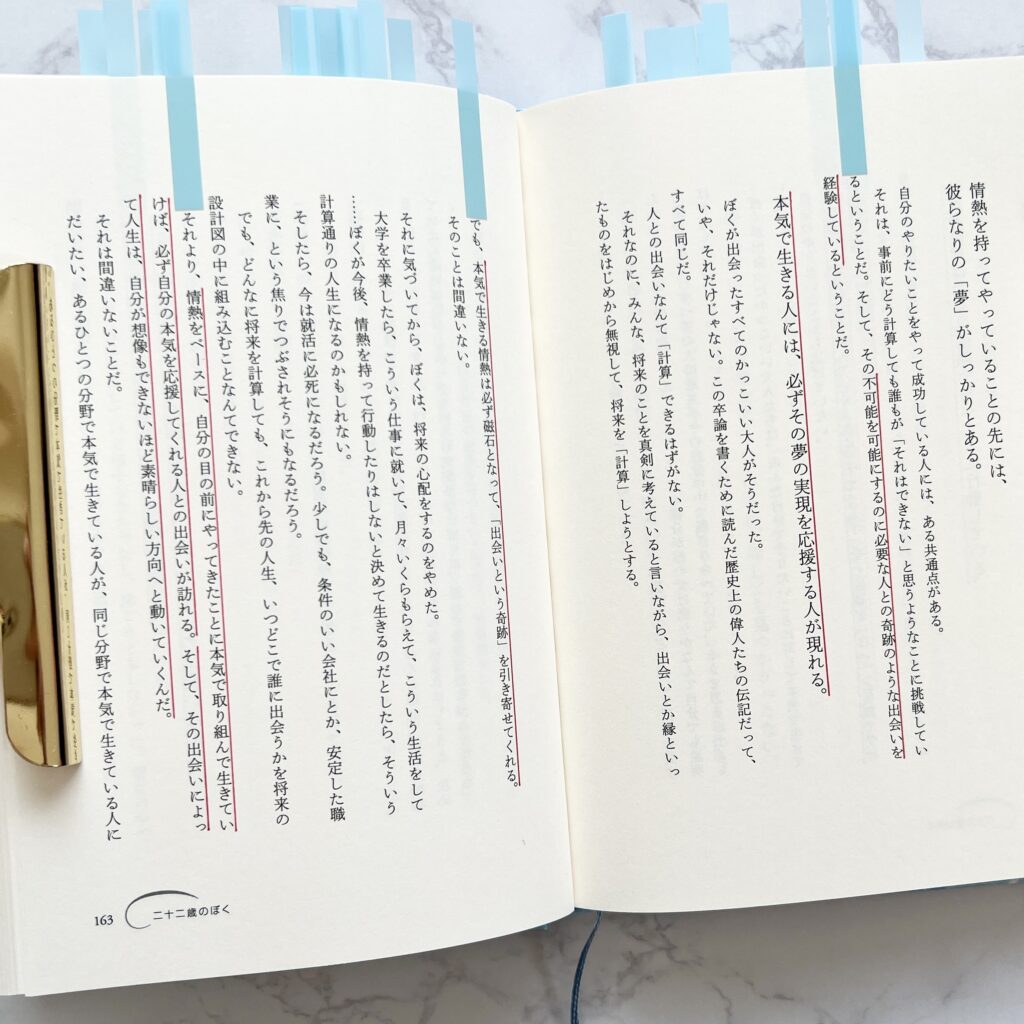 情熱を持ってやっていることの先には、
彼らなりの「夢」がしっかりとある。
自分のやりたいことをやって成功している人には、ある共通点がある。
それは、事前にどう計算しても誰もが「それはできない」と思うようなことに挑戦してい
るということだ。そして、その不可能を可能にするのに必要な人との奇跡のような出会いを
経験しているということだ。
本気で生きる人には、必ずその夢の実現を応援する人が現れる。
ぼくが出会ったすべてのかっこいい大人がそうだった。
いや、それだけじゃない。この卒論を書くために読んだ歴史上の偉人たちの伝記だって、
すべて同じだ。
人との出会いなんて「計算」できるはずがない。
それなのに、みんな、将来のことを真剣に考えていると言いながら、出会いとか縁といっ
たものをはじめから無視して、将来を「計算」しようとする。
でも、本気で生きる情熱は必ず磁石となって、「出会いという奇跡」を引き寄せてくれる。
そのことは間違いない。
それに気づいてから、ぼくは、将来の心配をするのをやめた。
大学を卒業したら、こういう仕事に就いて、月々いくらもらえて、こういう生活をして
……ぼくが今後、情熱を持って行動したりはしないと決めて生きるのだとしたら、そういう
計算通りの人生になるのかもしれない。
そしたら、今は就活に必死になるだろう。少しでも、条件のいい会社にとか、安定した職
業に、という焦りでつぶされそうにもなるだろう。
でも、どんなに将来を計算しても、これから先の人生、いつどこで誰に出会うかを将来の
設計図の中に組み込むことなんてできない。
それより、情熱をベースに、自分の目の前にやってきたことに本気で取り組んで生きてい
けば、必ず自分の本気を応援してくれる人との出会いが訪れる。そして、その出会いによっ
て人生は、自分が想像もできないほど素晴らしい方向へと動いていくんだ。
それは間違いないことだ。
だいたい、あるひとつの分野で本気で生きている人が、同じ分野で本気で生きている人に
163 二十二歳のぼく